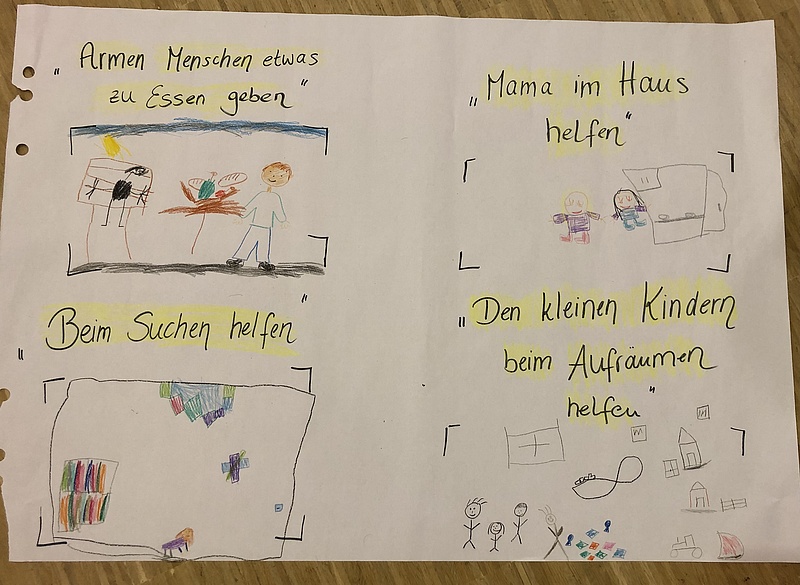 „Armen Menschen etwas
zu Essen geben"
„Mama im Haus
helfen"
„Beim Suchen helfen"
„Den kleinen Kindern
beim Aufräumen
helfen"